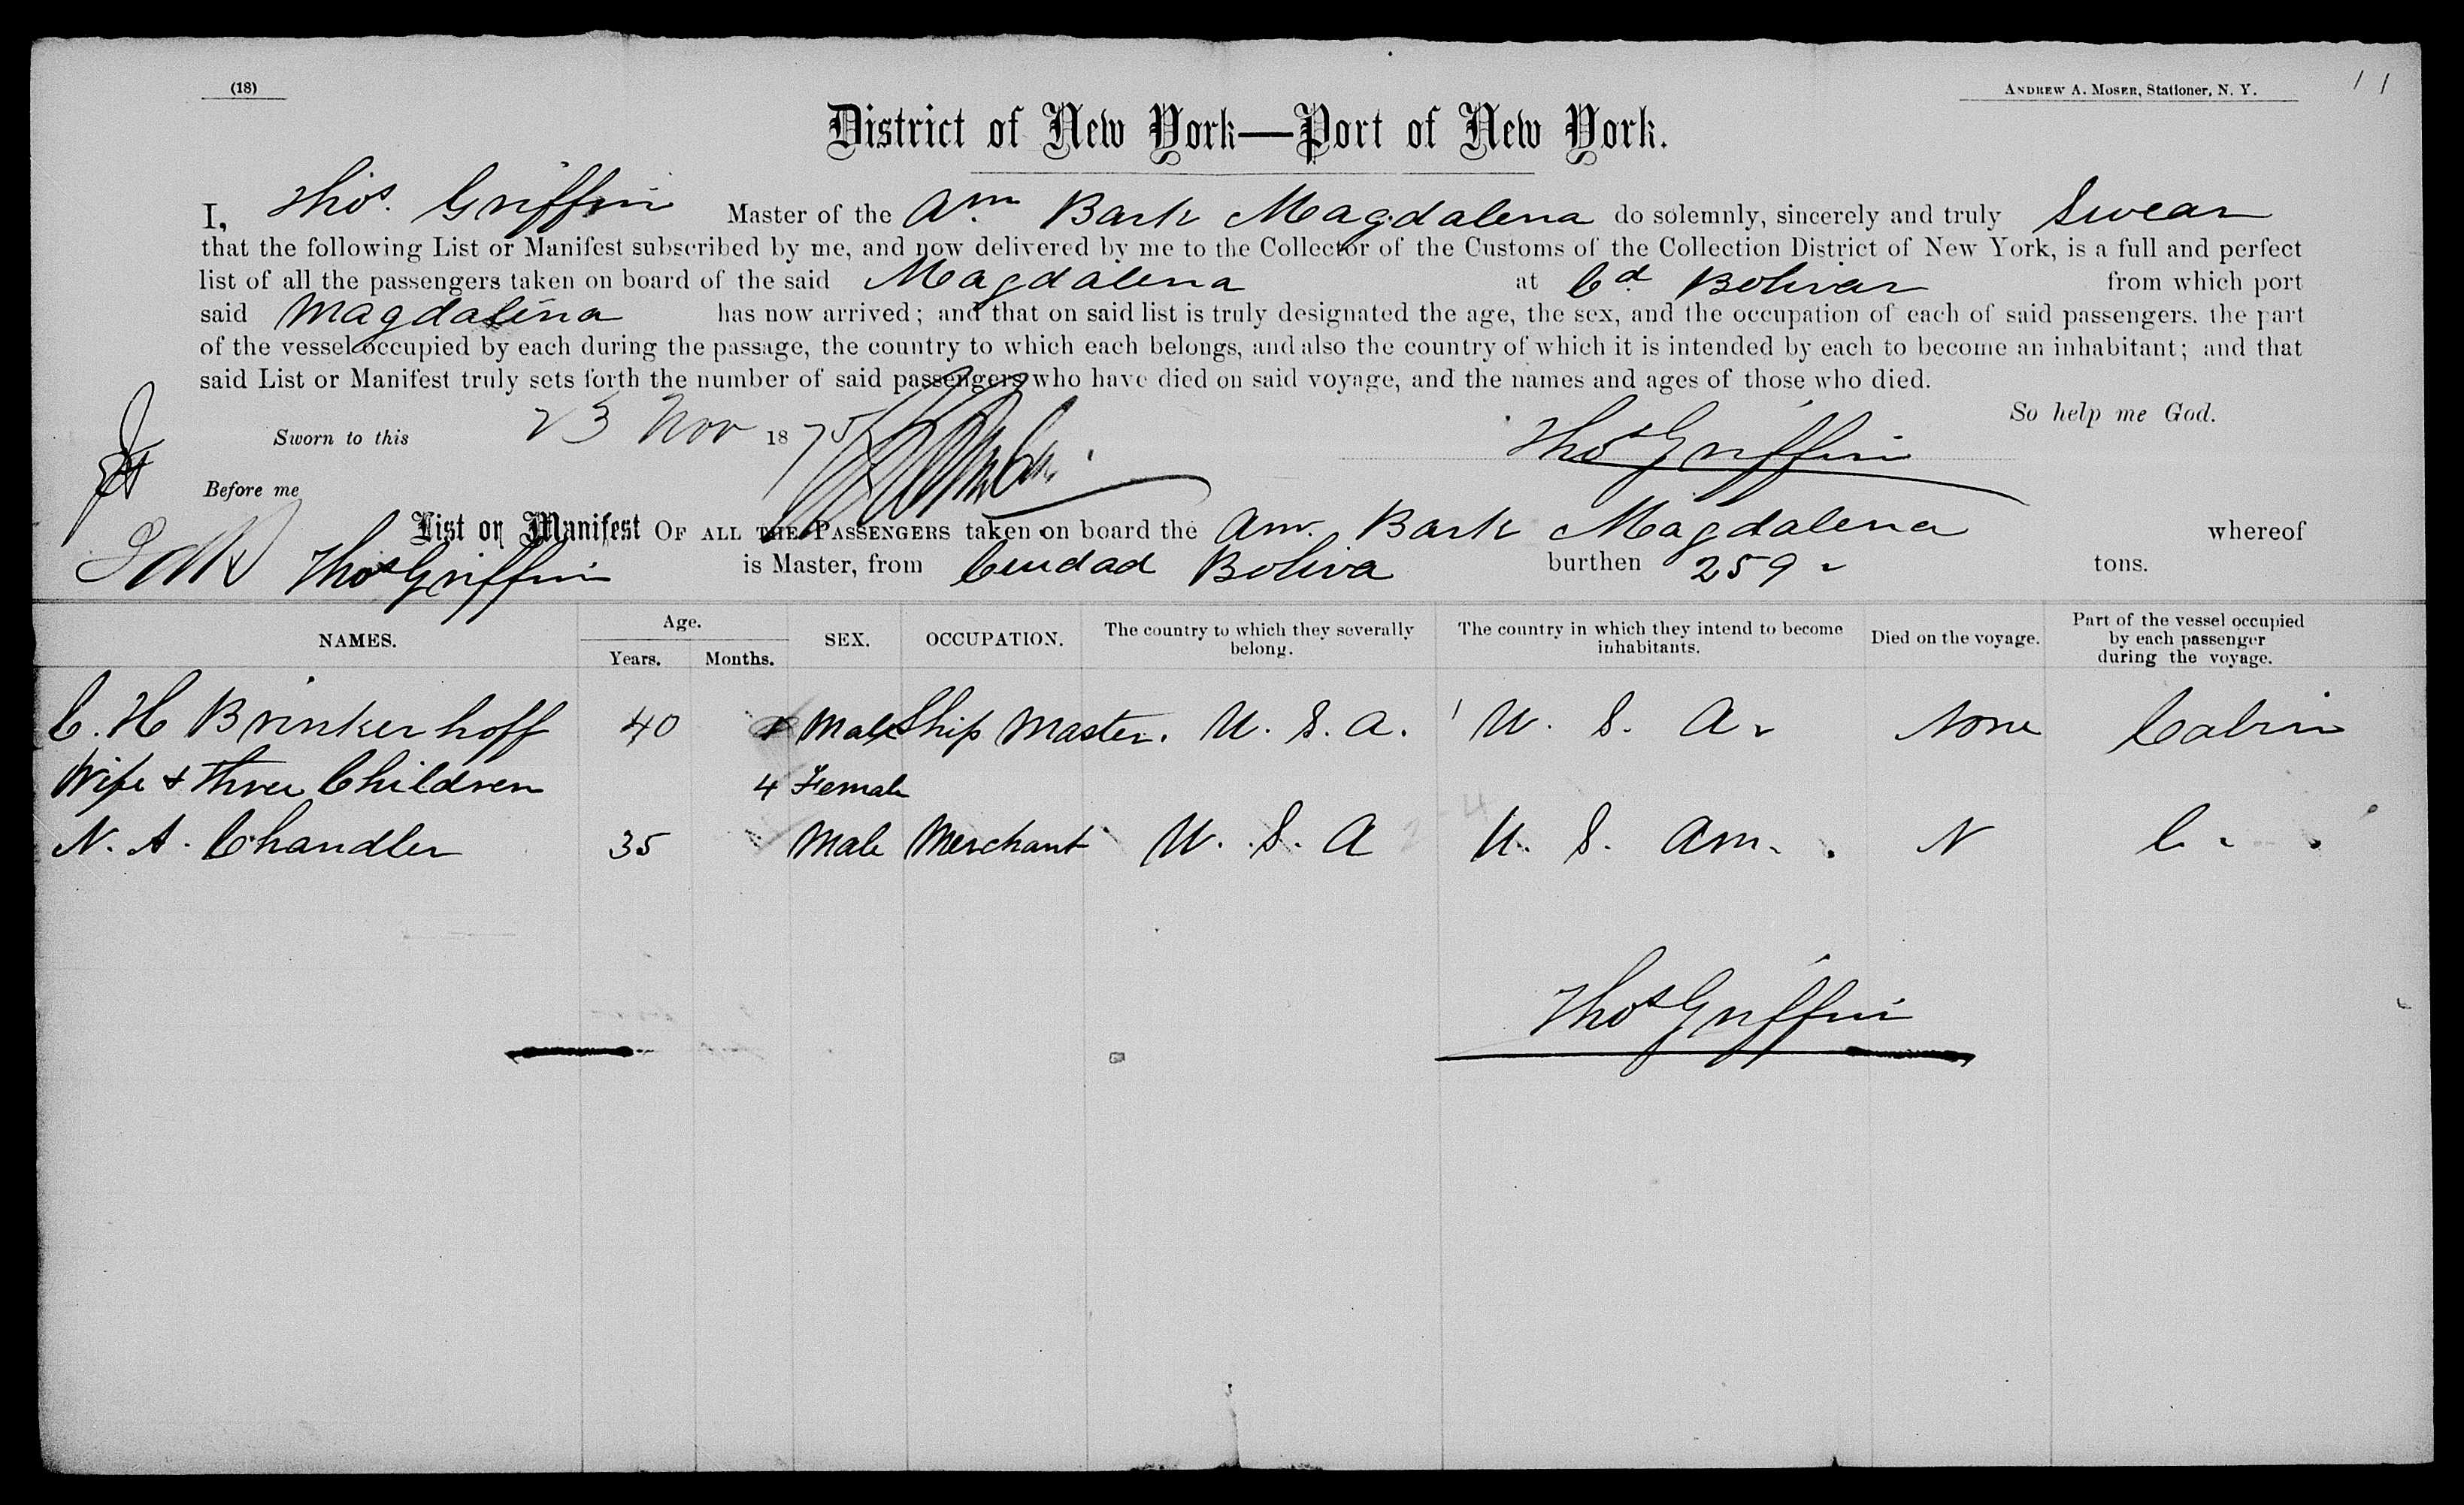 (18)
ANDREW A. MOSER, Stationer, N. Y.
11
District of New York—Port of New York.
I, Thos. Griffin Master of the Am Bark Magdalena do solemnly, sincerely and truly Swear
that the following List or Manifest subscribed by me, and now delivered by me to the Collector of the Customs of the Collection District of New York, is a full and perfect
list of all the passengers taken on board of the said Magdalena at Cd Bolivar from which port
said Magdalena has now arrived; and that on said list is truly designated the age, the sex, and the occupation of each of said passengers. the part
of the vessel occupied by each during the passage, the country to which each belongs, and also the country of which it is intended by each to become an inhabitant; and that
said List or Manifest truly sets forth the number of said passengers who have died on said voyage, and the names and ages of those who died.
So help me God.
Sworn to this 23 Nov 1875
Thos Griffin
Before me
List or Manifest OF ALL THE PASSENGERS taken on board the Am. Bark Magdalena whereof
Thos Griffin is Master, from Ciudad Boliva burthen 259 tons.
NAMES. Age. Years. Months. SEX. OCCUPATION. The country to which they severally belong. The country in which they intend to become inhabitants. Died on the voyage. Part of the vessel occupied by each passenger during the voyage.
C. H Brinkerhoff 40 Male Ship Master. U. S. A. U. S. A. None Cabin
Wife & three Children 4 Female
N. A. Chandler 35 Male Merchant U. S. A U. S. Am. N C.
2-4
Thos Griffin